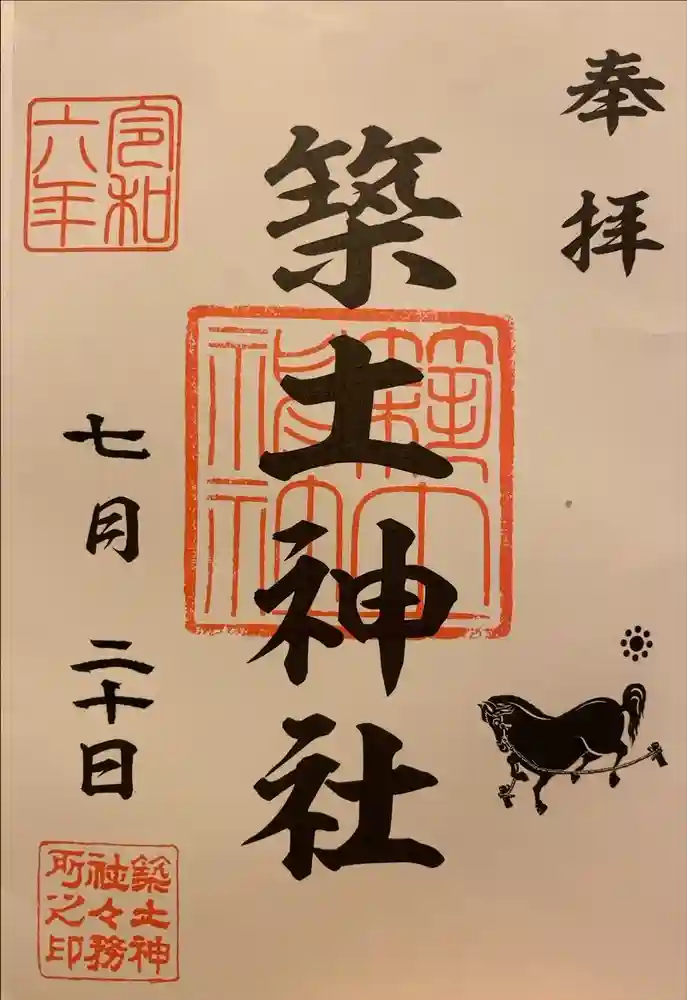 奉拝
築土神社
築土神社
令和六年
七月二十日
築土神
社々務
所之印